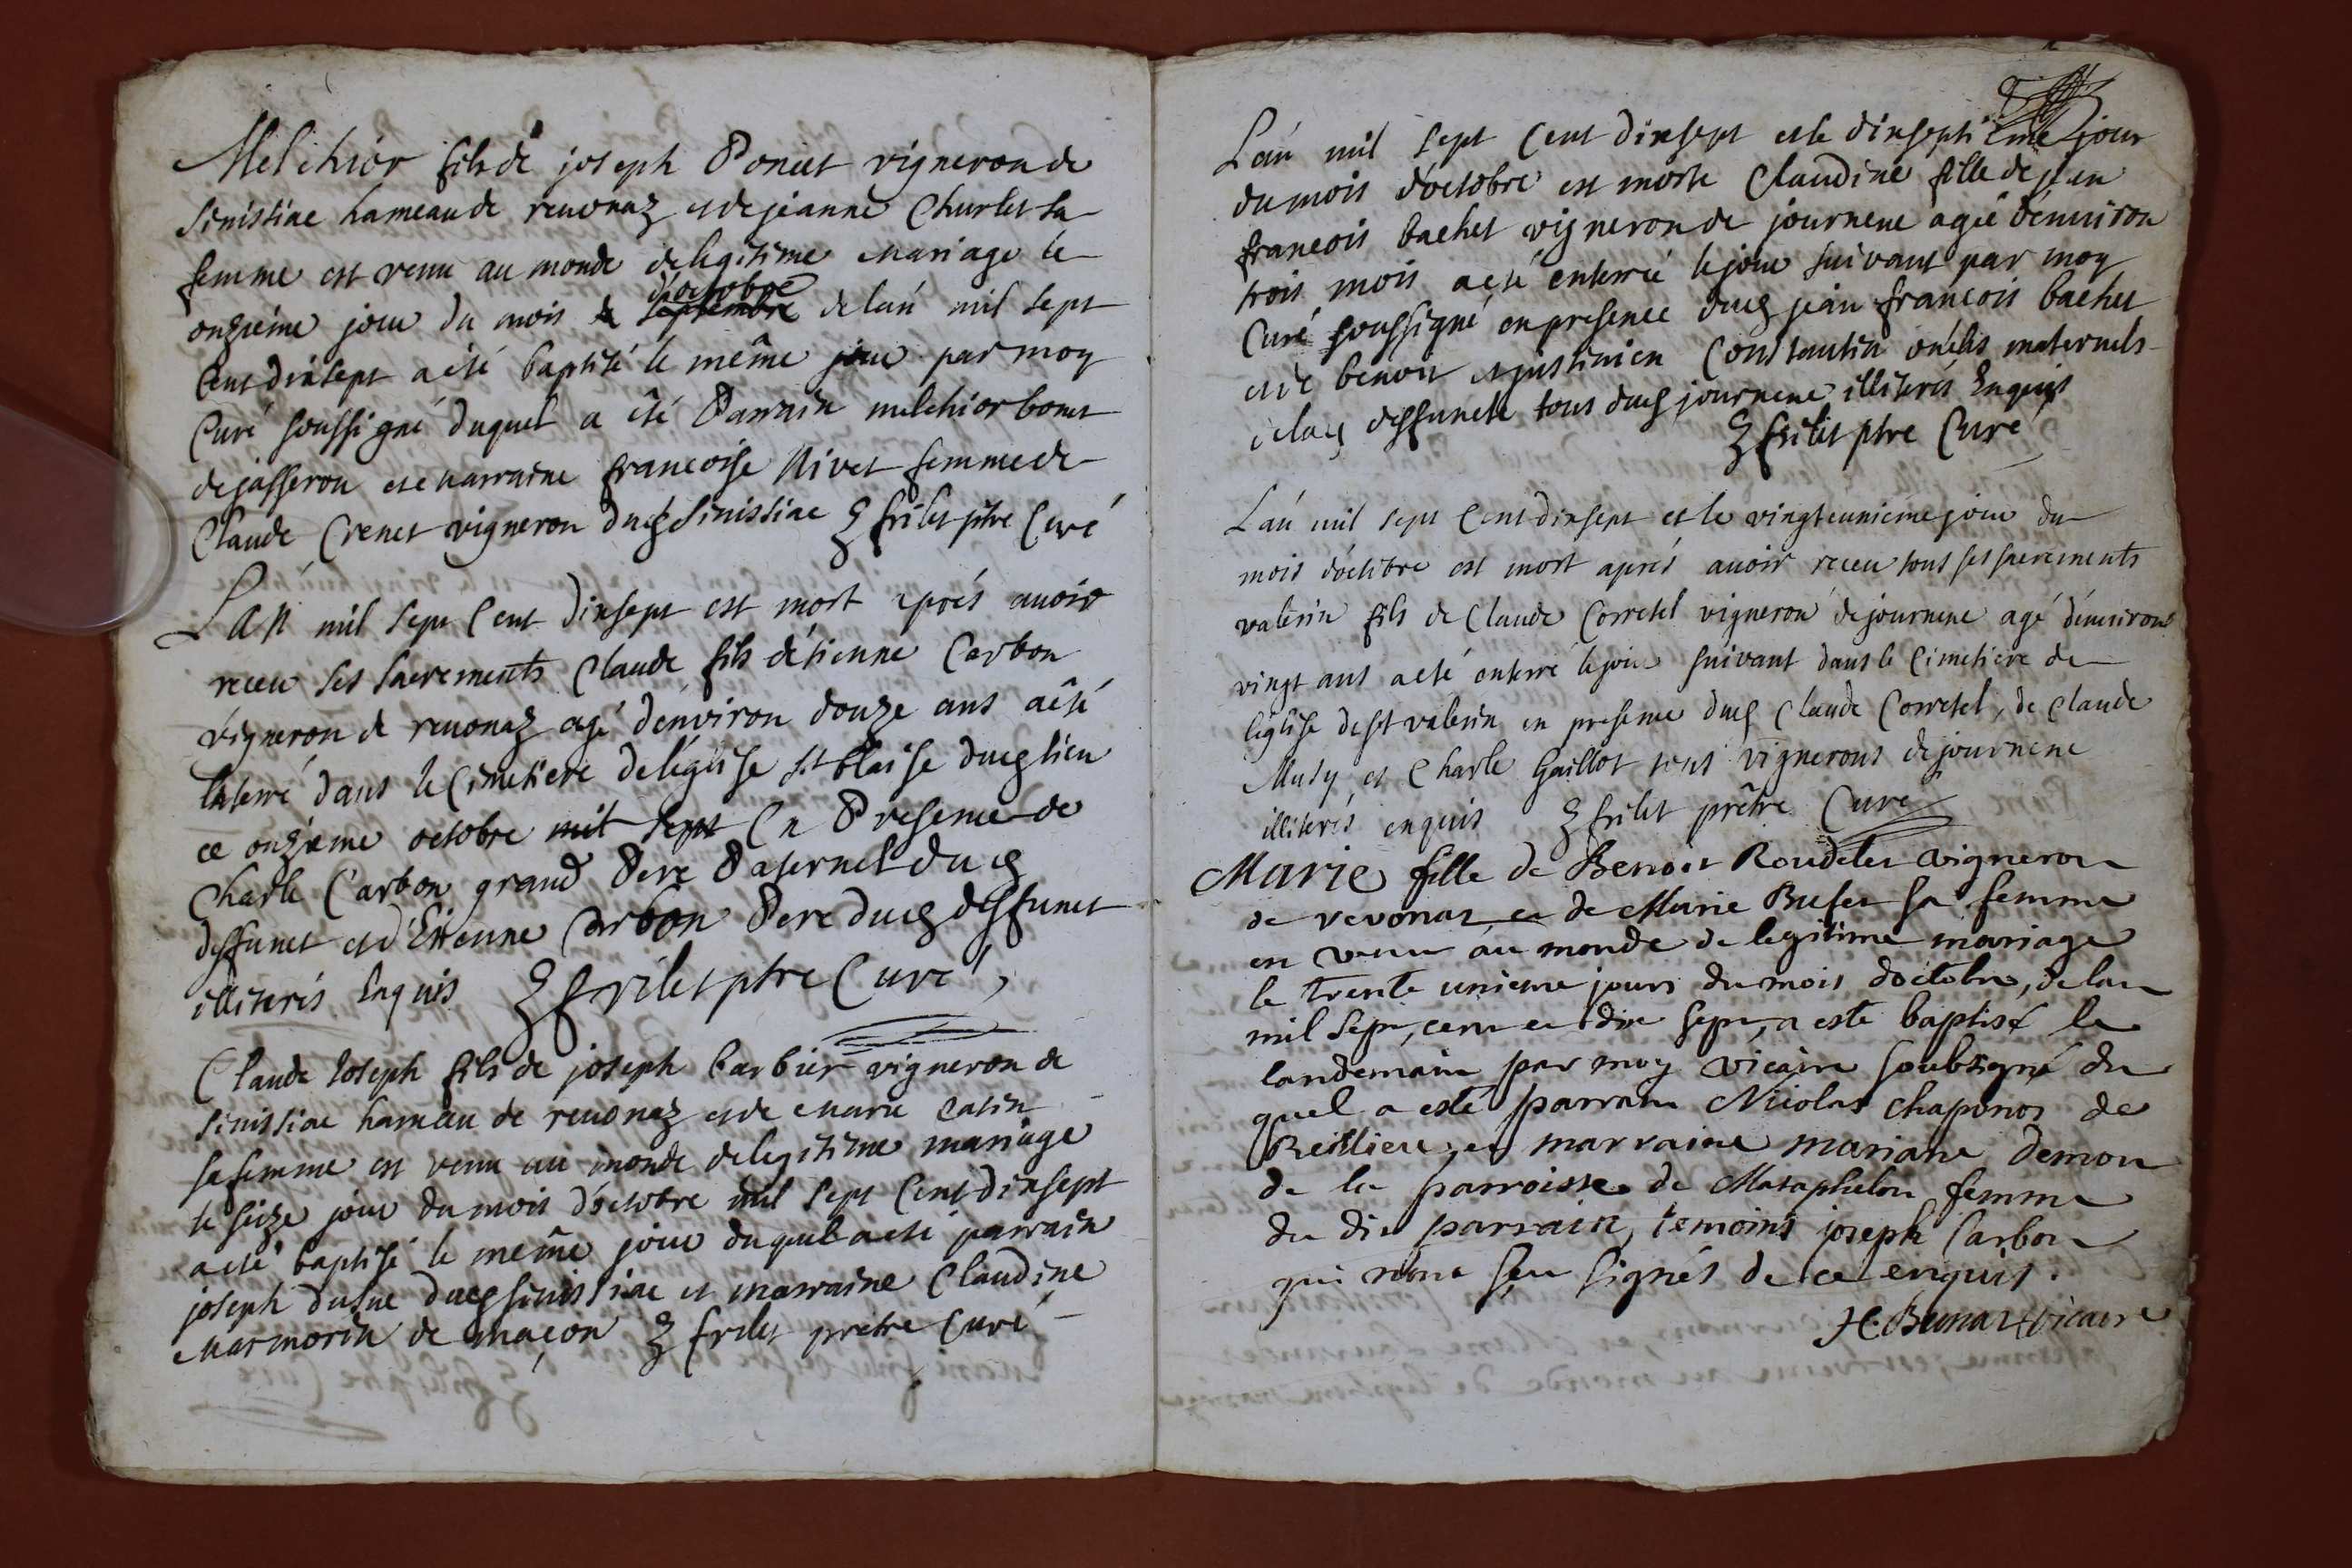 Melchior fils de joseph Poncet vigneron de
sinissiac hameau de revonaz et de jeanne Churlet sa
femme est venu au monde de legitime mariage le
onzieme jour du mois d'octobre de lan mil sept
Cent dixsept a esté baptisé le même jour par moy
Curé soussigné duquel a êté Parrain melchior bonet
de jasseron et marraine francoise Nivet femme de
Claude Crenet vigneron dud sinissiac frilet ptre Curé
Lan mil sept Cent dixsept est mort aprés avoir
receu ses sacrements Claude fils détienne Carbon
vigneron de revonaz agé denviron douze ans aêté
Enterré dans le Cimetiere de léglise st blaise dud lieu
ce onzieme octobre mil sept En Presence de
Charle Carbon grand Pere Paternel dud
deffunct et d'Etienne Carbon Pere dud deffunct
illiterés Enquis frilet ptre Curé
Claude Joseph fils de joseph barbier vigneron de
sinissiac hameau de revonaz et de marie Catin
sa femme est venu au monde de legitime mariage
le seize jour du mois d'octobre mil sept Cent dixsept
a eté baptisé le même jour duquel a eté parrain
joseph dusue dud sinissiac et marraine Claudine
marmorin de maçon frilet prêtre Curé
Lan mil sept Cent dixsept et le dixseptiême jour
du mois d'octobre est morte Claudine fille de jean
francois bachet vigneron de journene agée d'environ
trois mois a eté enterrée le jour suivant par moy
Curé soussigné en presence dud jean francois bachet
et de benoit et justinien Constantin oncles maternels
de lad deffuncte tous dud journene illiterés Enquis
frilet ptre Curé
Lan mil sept Cent dixsept et le vingteunieme jour du
mois doctobre est mort aprés avoir receu tous ses sacrements
valerin fils de Claude Corretel vigneron de journene agé d'environ
vingt ans a eté enterré le jour suivant dans le Cimetiere de
l'église de st valerin en presence dud Claude Corretel, de Claude
Musy et Charle Gaillot tous vignerons de journene
illiterés enquis frilet prêtre Curé
Marie fille de Benoit Roudelet vigneron
de revonas et de Marie Bufet sa femme
est venue au monde de legitime mariage
le trente unieme jours du mois doctobre, de lan
mil sept, cent et dix sept, a esté baptisé le
landemain par moy vicaire soubsigné du
quel a esté parrain Nicolas Chaponos de
Reillieu, et marraine mariane demon
de la parroisse de Mataphelon femme
du dit parrain, temoins joseph Carbon
qui nont seu signés de ce enquis.
H. Bernar vicaire